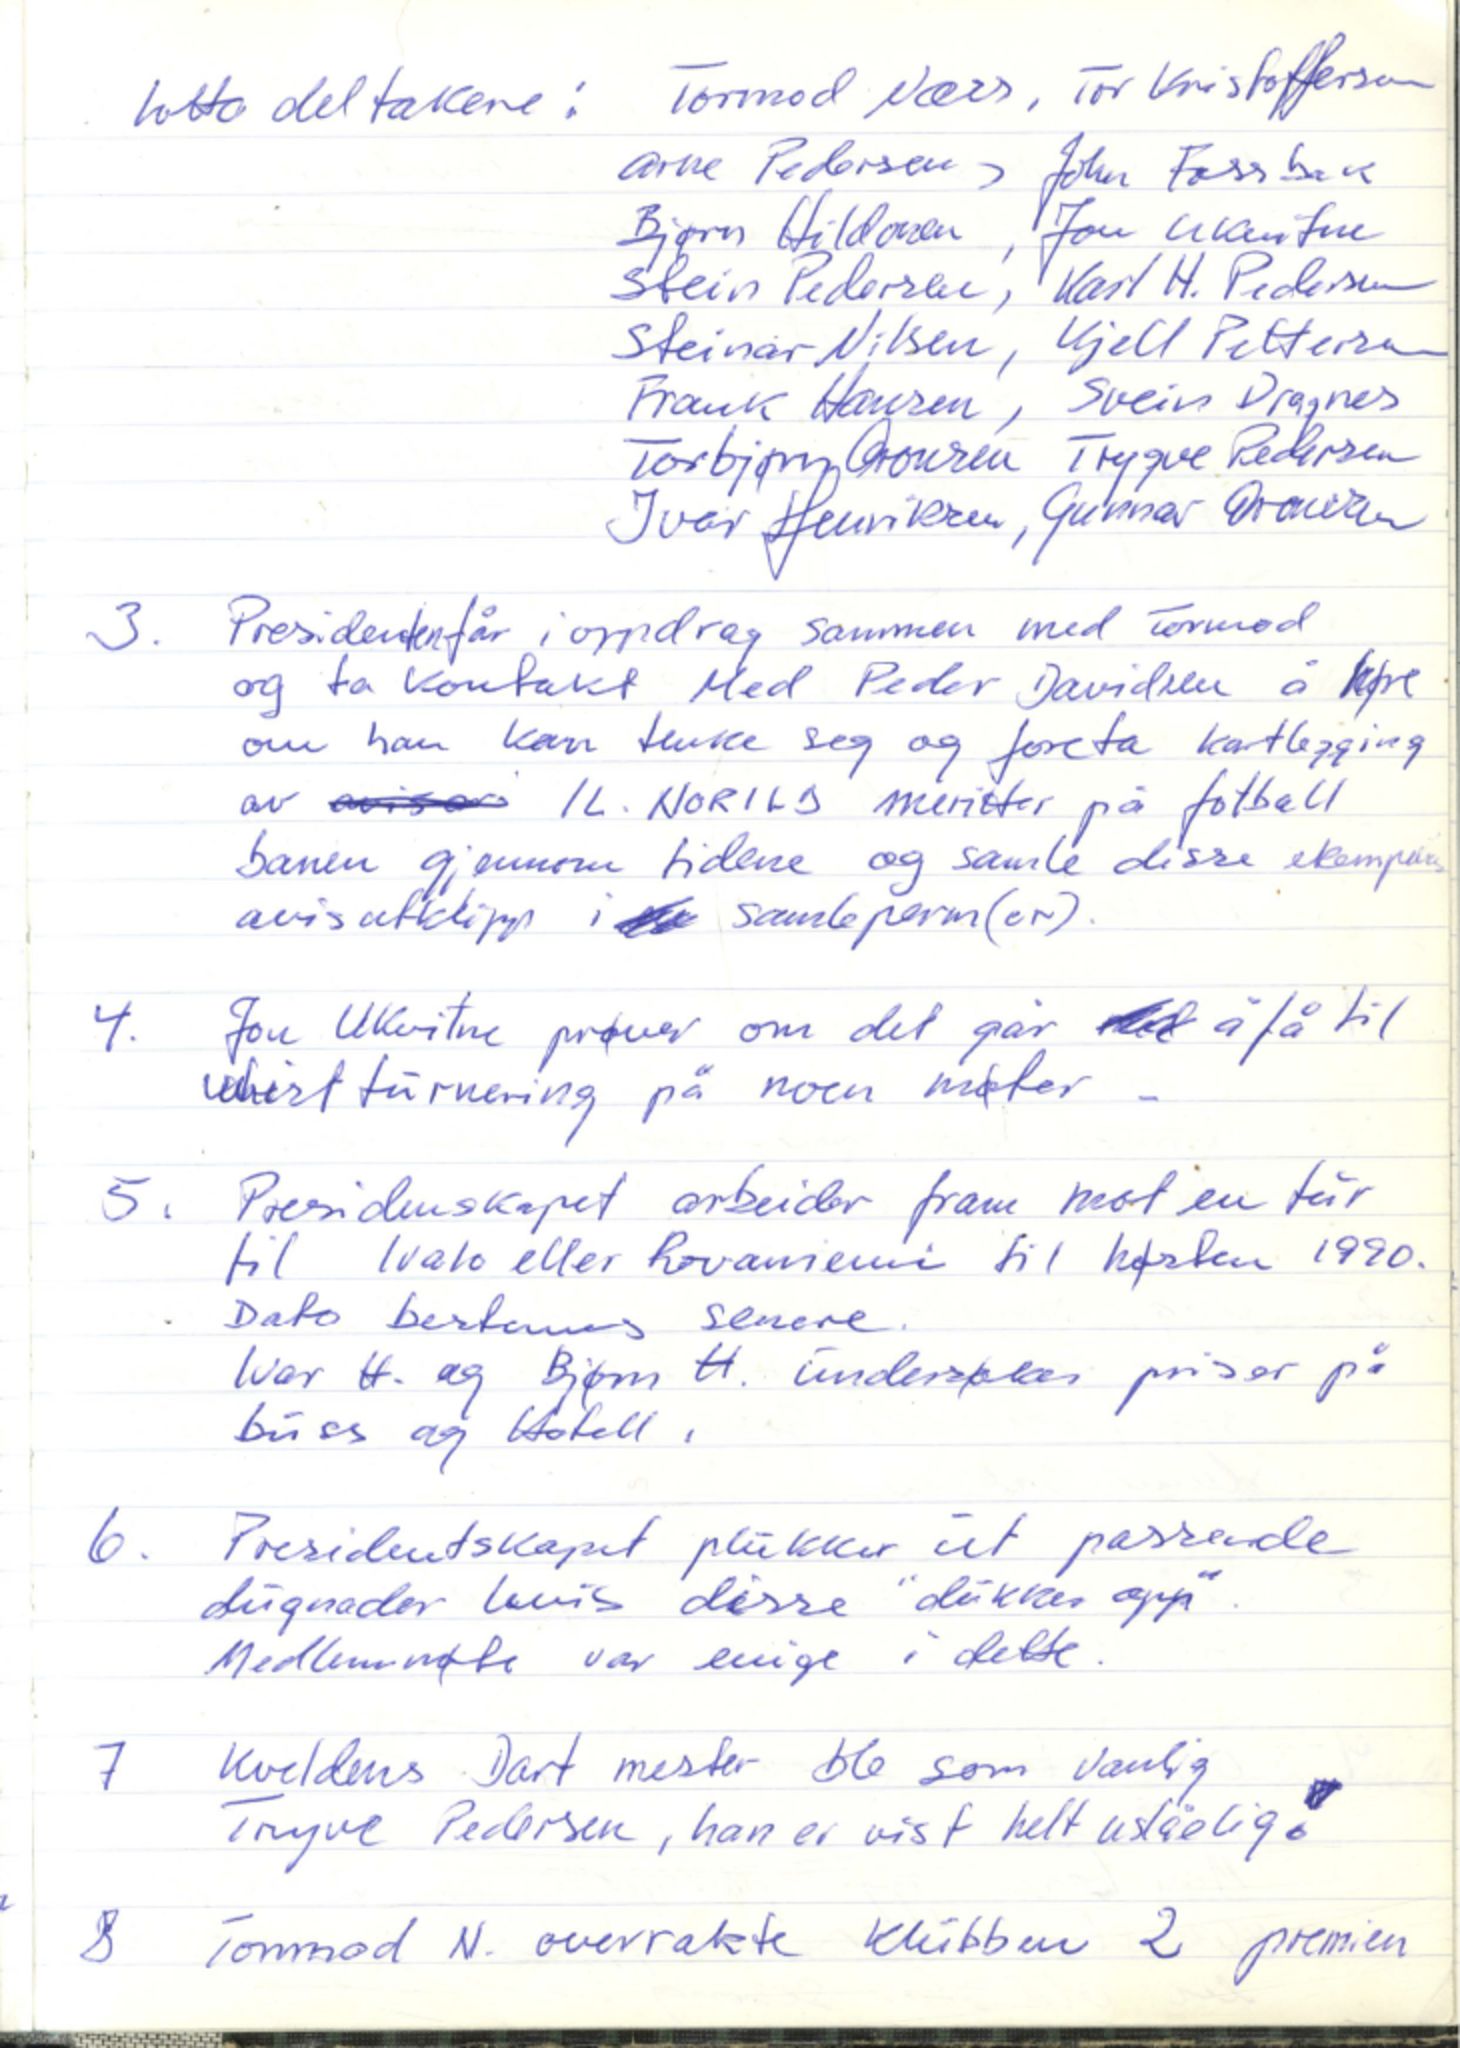 Lotto deltakere: Tormod Næss, Tor Kristoffersen
Arne Pedersen, John Fossbak
Bjørn Hildonen, Jon Ukvitne
Stein Pedersen, Karl H. Pedersen
Steinar Nilsen, Kjell Pettersen
Frank Hansen, Svein Dragnes
Torbjørn Aronsen Trygve Pedersen
Ivar Henriksen, Gunnar Aronsen
3. Presidenten får i oppdrag sammen med Tormod
og ta kontakt Med Peder Davidsen å høre
om han kan tenke seg og foreta kartlegging
av IL. NORILD meritter på fotball
banen gjennom tidene og samle disse
avisutklipp i samleperm(er).
4. Jon Ukvitne prøver om det går å få til
whist turnering på noen møter -
5. Presidenskapet arbeider fram mot en tur
til Ivalo eller Rovaniemi til høsten 1990.
Dato bestemmes senere.
Ivar H. og Bjørn H. undersøker priser på
buss og Hotell.
6. Presidentskapet plukker ut passende
dugnader hvis disse "dukker opp".
Medlemmøte var enige i dette.
7 Kveldens Dart mester ble som vanlig
Trygve Pedersen, han er vist helt uslåelig!
8 Tormod N. overrakte klubben 2 premien